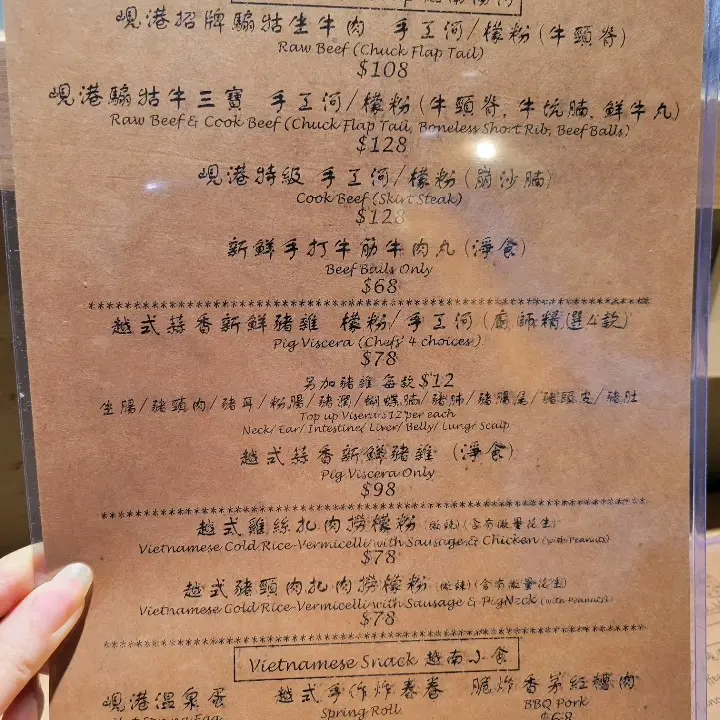 峴港招牌騸牯坐牛肉 手工河/檬粉(牛頸脊)
Raw Beef (Chuck Flap Tail)
$108
峴港騸牯牛三寶 手工河/檬粉(牛頸脊, 牛坑腩, 鮮牛丸)
Raw Beef & Cook Beef (Chuck Flap Tail, Boneless Short Rib, Beef Balls)
$128
峴港特級 手工河/檬粉(崩沙腩)
Cook Beef (Skirt Steak)
$128
新鮮手打牛筋牛肉丸(淨食)
Beef Balls Only
$68
越式蒜香新鮮豬雜 檬粉/手工河(廚師精選4款)
Pig Viscera (Chefs' 4 choices)
$78
另加豬雜每款$12
生腸/豬頸肉/豬耳/粉腸/豬潤/蝴蝶腩/豬肺/豬腸尾/豬頭皮/豬肚
Top up Visera $12 per each
Neck/ Ear/ Intestine/ Liver/ Belly/ Lung/ Scalp
越式蒜香新鮮豬雜 (淨食)
Pig Viscera Only
$98
越式雞絲扎肉撈檬粉 (微辣)(含有微量花生)
Vietnamese Cold Rice-Vermicelli with Sausage & Chicken (with Peanuts)
$78
越式豬頸肉扎肉撈檬粉 (微辣)(含有微量花生)
Vietnamese Cold Rice-Vermicelli with Sausage & Pig Neck (with Peanuts)
$78
Vietnamese Snack 越南小食
峴港溫泉蛋 越式手作炸春卷 脆炸香茅紅糟肉
Spring Egg Spring Roll BBQ Pork